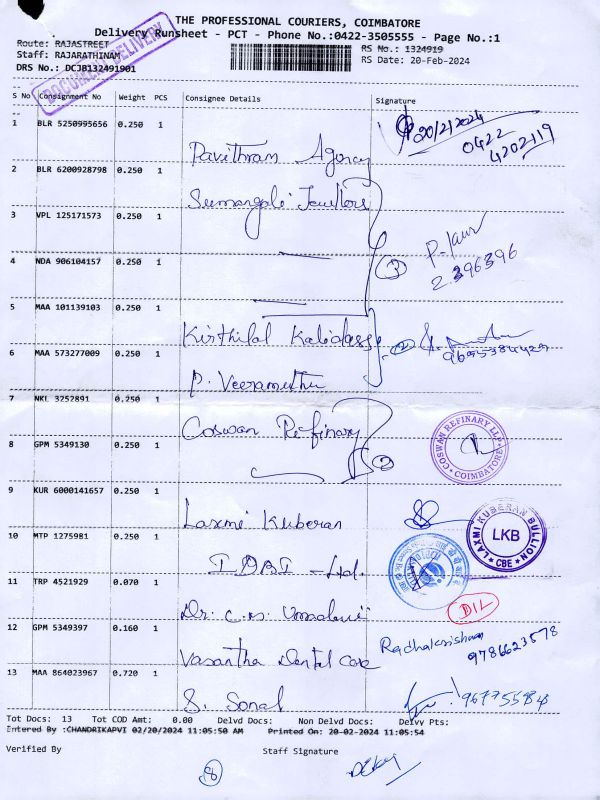 THE PROFESSIONAL COURIERS, COIMBATORE
Delivery Runsheet - PCT - Phone No.:0422-3505555 - Page No.:1
Route: RAJASTREET
RS No.: 1324919
Staff: RAJARATHINAM
RS Date: 20-Feb-2024
DRS No.: DCJB132491901
DOCUMENT DELIVERY
S No Consignment No Weight PCS Consignee Details Signature
1 BLR 5250995656 0.250 1 Pavithram Agency 20/2/2024
0422
4202119
2 BLR 6200928798 0.250 1 Sumangali Jewellers
3 VPL 125171573 0.250 1
4 NDA 906104157 0.250 1 3 P. 2396396
5 MAA 101139103 0.250 1 Kirthilal Kalidass 2
6 MAA 573277009 0.250 1 P. Veeramuthu
7 NKL 3252891 0.250 1 Coswan Refinary 2
COSWAN REFINERY LLP COIMBATORE
8 GPM 5349130 0.250 1
9 KUR 6000141657 0.250 1 Laxmi Kuberan
LAXMI KUBERAN BULLION LKB CBE
10 MTP 1275981 0.250 1 IDBI - Ltd.
11 TRP 4521929 0.070 1 Dr. C.N. DIL
12 GPM 5349397 0.160 1 Vasantha Dental Care Radhakrishnan
9786623578
13 MAA 864023967 0.720 1 S. Sonal
Tot Docs: 13 Tot COD Amt: 0.00 Delvd Docs: Non Delvd Docs: Delvy Pts:
Entered By :CHANDRIKAPVI 02/20/2024 11:05:50 AM Printed On: 20-02-2024 11:05:54
Verified By Staff Signature
8